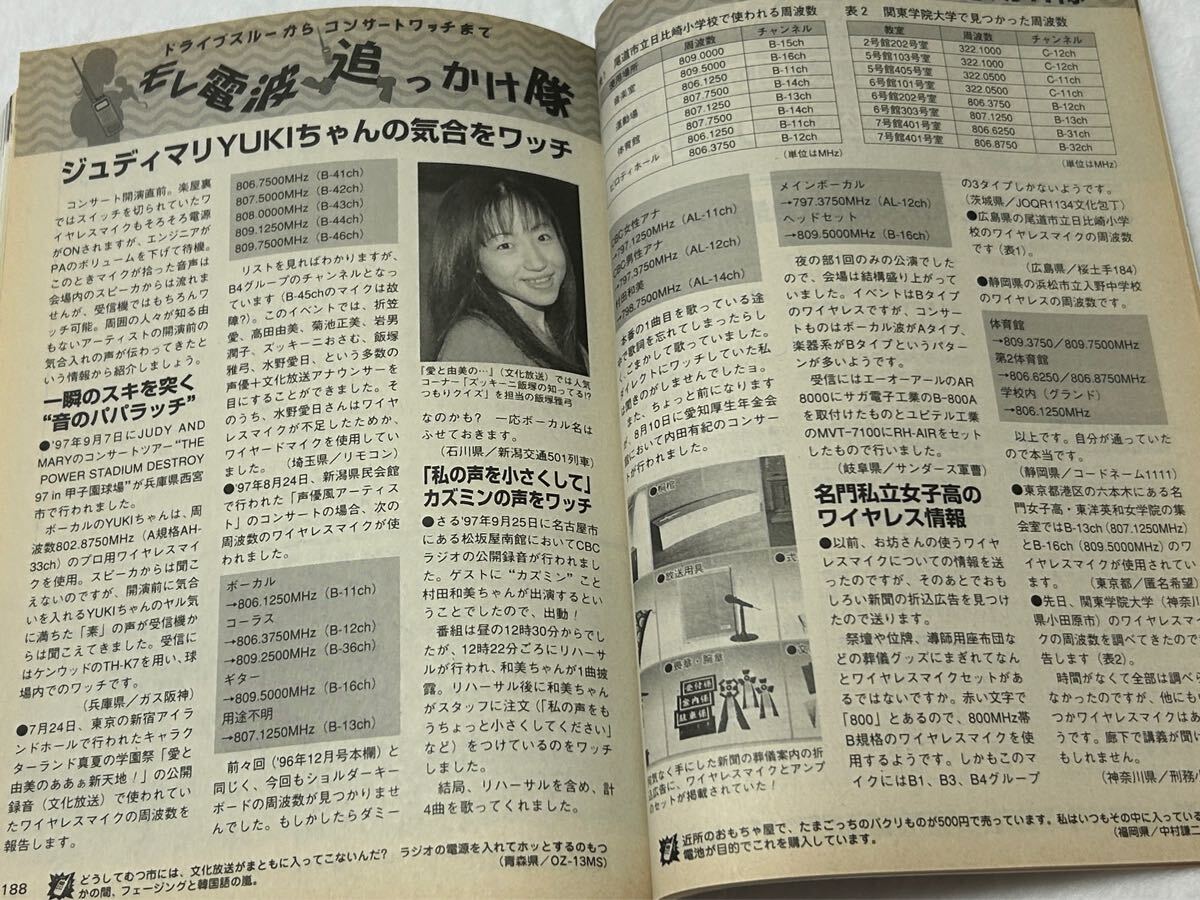 ドライブスルーから コンサートワッチまで
モレ電波追っかけ隊
ジュディマリYUKIちゃんの気合をワッチ
コンサート開演直前。楽屋裏
ではスイッチを切られていたワ
イヤレスマイクもそろそろ電源
がONされますが、エンジニアが
PAのボリュームを下げて待機。
このときマイクが拾った音声は
会場内のスピーカからは流れま
せんが、受信機ではもちろんワ
ッチ可能。周囲の人々が知る由
もないアーティストの開演前の
気合入れの声が伝わってきたと
いう情報から紹介しましょう。
一瞬のスキを突く
“音のパパラッチ”
●'97年9月7日にJUDY AND
MARYのコンサートツアー“THE
POWER STADIUM DESTROY
97 in 甲子園球場”が兵庫県西宮
市で行われました。
ボーカルのYUKIちゃんは、周
波数802.8750MHz（A規格AH-
33ch)のプロ用ワイヤレスマイ
クを使用。スピーカからは聞こ
えないのですが、開演前に気合
いを入れるYUKIちゃんのヤル気
に満ちた「素」の声が受信機か
らは聞こえてきました。受信に
はケンウッドのTH-K7を用い、球
場内でのワッチです。
（兵庫県／ガス阪神）
●7月24日、東京の新宿アイラ
ンドホールで行われたキャラク
ターランド真夏の学園祭「愛と
由美のああぁ新天地！」の公開
録音（文化放送）で使われてい
たワイヤレスマイクの周波数を
報告します。
806.7500MHz（B-41ch）
807.5000MHz（B-42ch）
808.0000MHz（B-43ch）
809.1250MHz（B-44ch）
809.7500MHz（B-46ch）
リストを見ればわかりますが、
B4グループのチャンネルとなっ
ています（B-45chのマイクは故
障?）。このイベントでは、折笠
愛、高田由美、菊池正美、岩男
潤子、ズッキーニおさむ、飯塚
雅弓、水野愛日、という多数の
声優＋文化放送アナウンサーを
目にすることができました。そ
のうち、水野愛日さんはワイヤ
レスマイクが不足したためか、
ワイヤードマイクを使用してい
ました。　（埼玉県／リモコン）
●'97年8月24日、新潟県民会館
で行われた「声優風アーティス
ト」のコンサートの場合、次の
周波数のワイヤレスマイクが使
われていました。
ボーカル
→806.1250MHz（B-11ch）
コーラス
→806.3750MHz（B-12ch）
→809.2500MHz（B-36ch）
ギター
→809.5000MHz（B-16ch）
用途不明
→807.1250MHz（B-13ch）
前々回（'96年12月号本欄）と
同じく、今回もショルダーキー
ボードの周波数が見つかりませ
んでした。もしかしたらダミー
「愛と由美の…」（文化放送）では人気
コーナー「ズッキーニ飯塚の知ってる!?
つもりクイズ」を担当の飯塚雅弓
なのかも?　一応ボーカル名は
ふせておきます。
（石川県／新潟交通501列車）
「私の声を小さくして」
カズミンの声をワッチ
●さる'97年9月25日に名古屋市
にある松坂屋南館においてCBC
ラジオの公開録音が行われまし
た。ゲストに“カズミン”こと
村田和美ちゃんが出演するとい
うことでしたので、出動！
番組は昼の12時30分からでし
たが、12時22分ごろにリハーサ
ルが行われ、和美ちゃんが1曲披
露。リハーサル後に和美ちゃん
がスタッフに注文（「私の声をも
うちょっと小さくしてください」
など）をつけているのをワッチ
しました。
結局、リハーサルを含め、計
4曲を歌ってくれました。
188
どうしてむつ市には、文化放送がまともに入ってこないんだ?　ラジオの電源を入れてホッとするのもつ
かの間、フェージングと韓国語の嵐。
（青森県／OZ-13MS）
尾道市立日比崎小学校で使われる周波数
使用場所　周波数　チャンネル
809.0000　B-15ch
809.5000　B-16ch
音楽室　806.1250　B-11ch
807.7500　B-14ch
運動場　807.1250　B-13ch
807.7500　B-14ch
体育館　806.1250　B-11ch
ピロティホール　806.3750　B-12ch
（単位はMHz）
表2　関東学院大学で見つかった周波数
教室　周波数　チャンネル
2号館202号室　322.1000　C-12ch
5号館103号室　322.1000　C-12ch
5号館405号室　322.0500　C-11ch
6号館101号室　322.0500　C-11ch
6号館202号室　806.3750　B-12ch
6号館303号室　807.1250　B-13ch
7号館401号室　806.6250　B-31ch
7号館401号室　806.8750　B-32ch
（単位はMHz）
CBC女性アナ
→797.1250MHz（AL-11ch）
CBC男性アナ
→797.3750MHz（AL-12ch）
村田和美
→798.7500MHz（AL-14ch）
本番の1曲目を歌っている途
中で歌詞を忘れてしまったらし
く、ごまかして歌っていました。
ダイレクトにワッチしていた私
は聞きのがしませんでしたョ。
また、ちょっと前になります
が、8月10日に愛知厚生年金会
館において内田有紀のコンサー
トが行われました。
●桐棺
●放送用具
●式
●喪章・腕章
●文
受付係
案内係
駐車場
何気なく手にした新聞の葬儀案内の折
込広告に、ワイヤレスマイクとアンプ
のセットが掲載されていた！
メインボーカル
→797.3750MHz（AL-12ch）
ヘッドセット
→809.5000MHz（B-16ch）
夜の部1回のみの公演でした
ので、会場は結構盛り上がって
いました。イベントはBタイプ
のワイヤレスですが、コンサー
トものはボーカル波がAタイプ、
楽器系がBタイプというパター
ンが多いようです。
受信にはエーオーアールのAR
8000にサガ電子工業のB-800A
を取付けたものとユピテル工業
のMVT-7100にRH-AIRをセット
したもので行いました。
（岐阜県／サンダース軍曹）
名門私立女子高の
ワイヤレス情報
●以前、お坊さんの使うワイヤ
レスマイクについての情報を送
ったのですが、そのあとでおも
しろい新聞の折込広告を見つけ
たので送ります。
祭壇や位牌、導師用座布団な
どの葬儀グッズにまぎれてなん
とワイヤレスマイクセットがあ
るではないですか。赤い文字で
「800」とあるので、800MHz帯
B規格のワイヤレスマイクを使
用するようです。しかもこのマ
イクにはB1、B3、B4グループ
の3タイプしかないようです。
（茨城県／JOQR1134文化包丁）
●広島県の尾道市立日比崎小学
校のワイヤレスマイクの周波数
です（表1）。
（広島県／桜土手184）
●静岡県の浜松市立入野中学校
のワイヤレスの周波数です。
体育館
→809.3750／809.7500MHz
第2体育館
→806.6250／806.8750MHz
学校内（グランド）
→806.1250MHz
以上です。自分が通っていた
ので本当です。
（静岡県／コードネーム1111）
●東京都港区の六本木にある名
門女子高・東洋英和女学院の集
会室ではB-13ch（807.1250MHz）
とB-16ch（809.5000MHz）のワ
イヤレスマイクが使用されてい
ます。　（東京都／匿名希望）
●先日、関東学院大学（神奈川
県小田原市）のワイヤレスマイ
クの周波数を調べてきたので
告します（表2）。
時間がなくて全部は調べら
なかったのですが、他にもい
つかワイヤレスマイクはあ
うです。廊下で講義が聞け
もしれません。
（神奈川県／刑務
近所のおもちゃ屋で、たまごっちのパクリものが500円で売っています。私はいつもその中に入っている
電池が目的でこれを購入しています。
（福岡県／中村謙二